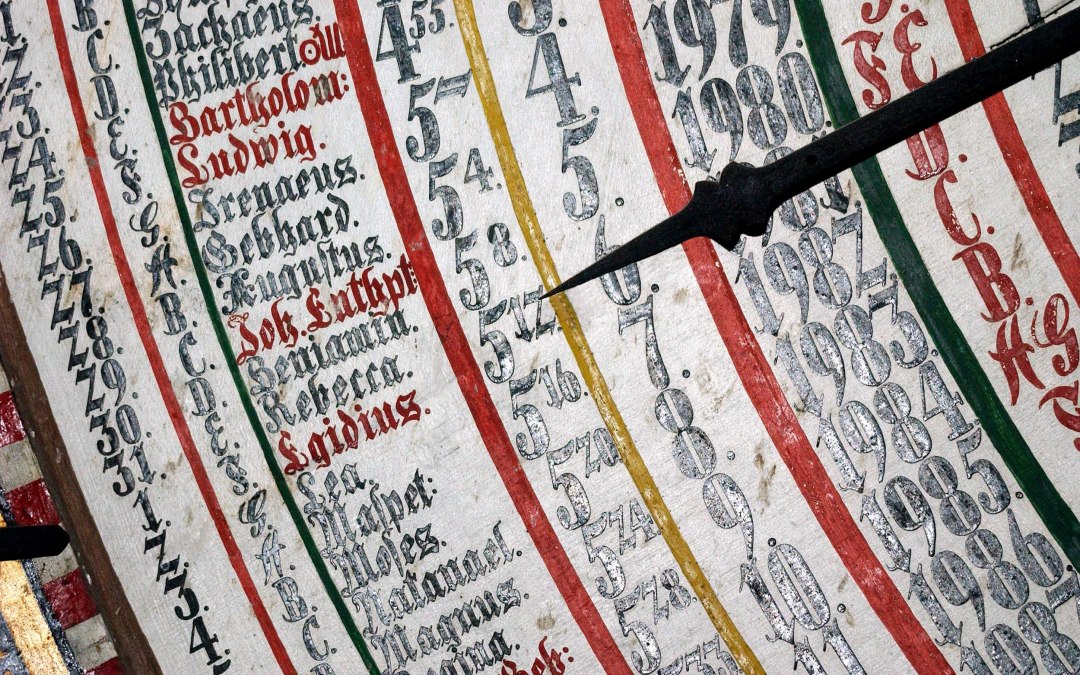 23.
24.
25.
26.
27.
28.
29.
30.
31.
1.
2.
3.
4.
B.
C.
D.
E.
F.
G.
A.
B.
C.
D.
E.
F.
G.
A.
B.
C.
D.
Zachaeus.
Philibert.
Bartholom:
Ludwig.
Irenaeus.
Gebhard.
Augustus.
Joh. Enthpt:
Benjamin.
Rebecca.
Egidius.
Lea.
Maspet:
Moses.
Natanael.
Magnus.
Regina.
Geb:
4 55.
5 –
5 4.
5 8.
5 12.
5 16.
5 20.
5 24.
5 28.
5 33
3.
4.
5.
6.
7.
8.
9.
10.
11.
1979.
1980.
1982
1983.
1984.
1985.
1986.
F. E.
D.
C.
B.
A G.